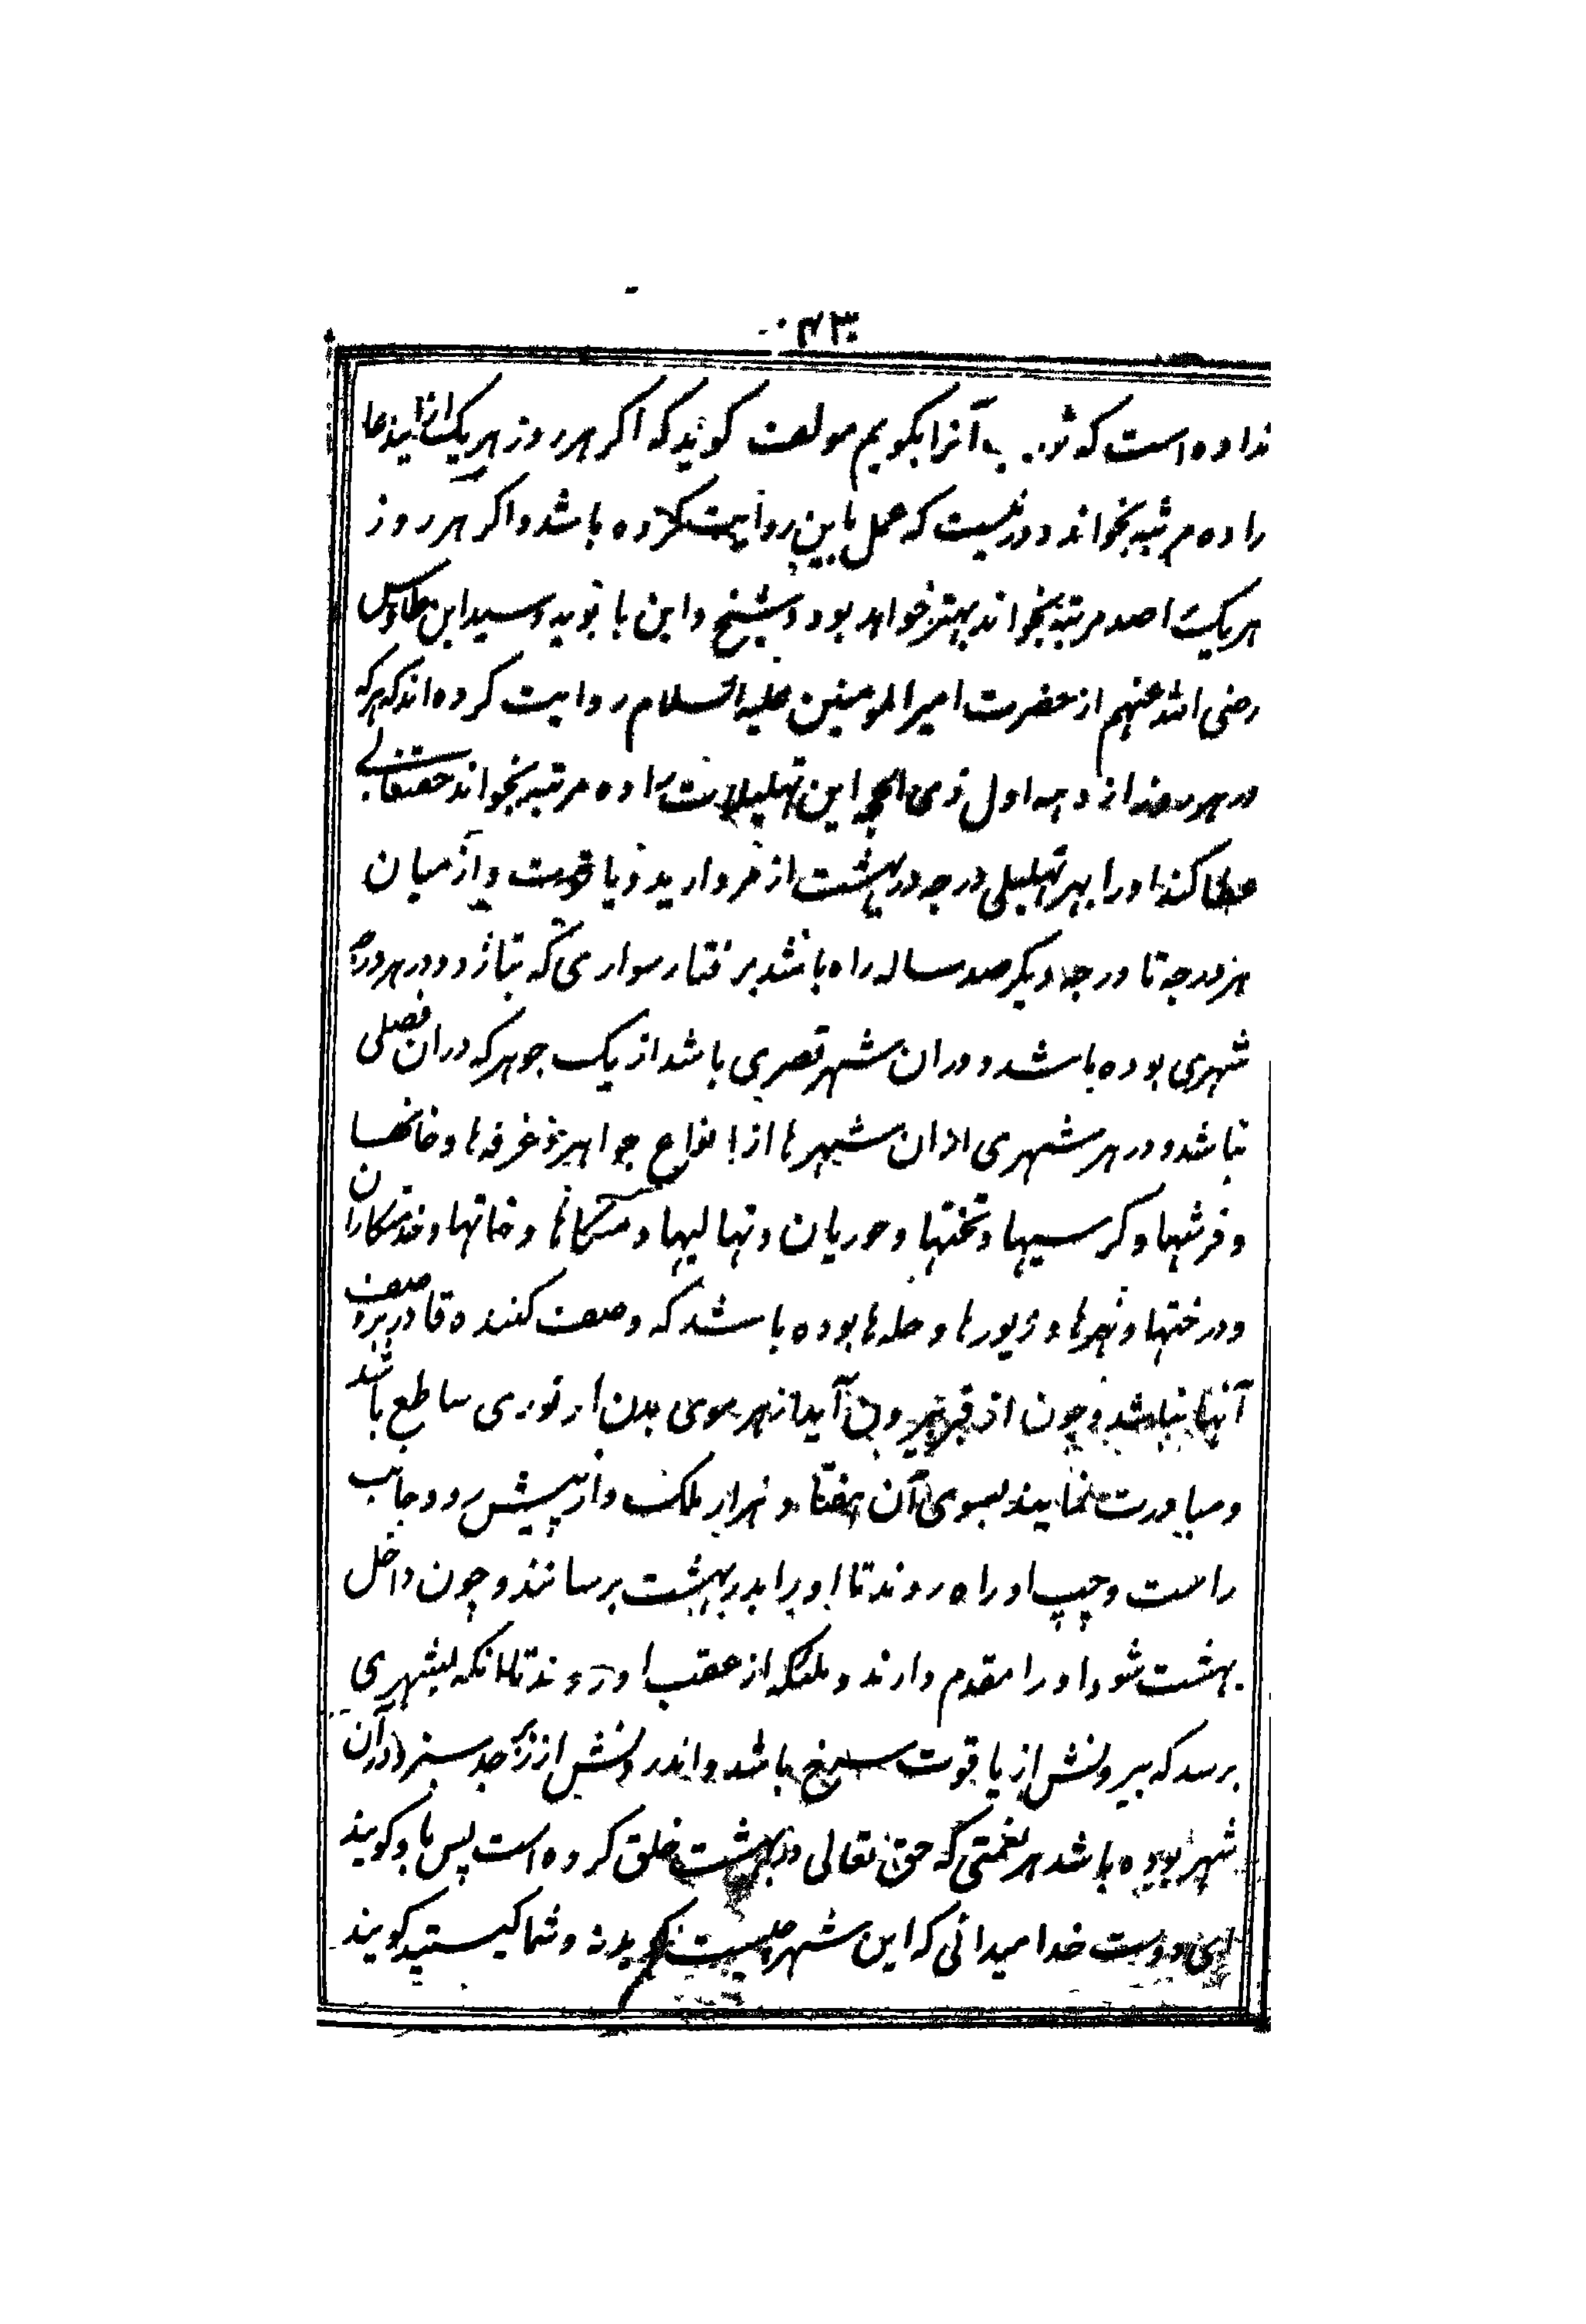 نداده است که ثو به آنرا بگویم مولف گوید که اگر هر روز هر یک از ایندعا
را ده مرتبه بخواند دور نیست که عمل باین روایت کرده باشد و اگر هر روز
هر یک را صد مرتبه بخواند بهتر خواهد بود و شیخ و ابن بابویه و سید ابن طاوس
رضی الله عنهم از حضرت امیر المومنین علیه السلام روایت کرده‌اند که هر که
در هر روز از دهه اول ذی الحجه این تهلیلات را ده مرتبه بخواند حقتعالی
عطا کند او را بهر تهلیلی درجه در بهشت از مروارید و یاقوت و از میان
هر درجه تا درجه دیگر صد ساله راه باشد بر فتار سواری که بتازد و در هر درجه
شهری بوده باشد و دران شهر قصری باشد از یک جوهر که دران فصلی
نباشد و در هر شهری ازان شهرها از انواع جواهر و غرفه‌ها و خانها
و فرشها و کرسیها و تختها و حوریان و نهالیها و متکاها و خانها و خدمتکاران
و درختها و نهرها و زیورها و حله‌ها بوده باشد که وصف کننده قادر بر وصف
آنها نباشد و چون از قبر بیرون آید از هر موی بدن او نوری ساطع باشد
و مبادرت نمایند بسوی آن هفتاد هزار ملک و از پیش رو و جانب
راست و چپ او راه روند تا او را بدر بهشت برسانند و چون داخل
بهشت شود او را مقدم دارند و ملئکه از عقب او روند تا آنکه بشهری
برسد که بیرونش از یاقوت سرخ باشد و اندرونش از زبرجد سبز و در آن
شهر بوده باشد هر نعمتی که حق تعالی در بهشت خلق کرده است پس باو گویند
ای دوست خدا میدانی که این شهر چیست گوید نه و شما کیستید گویند